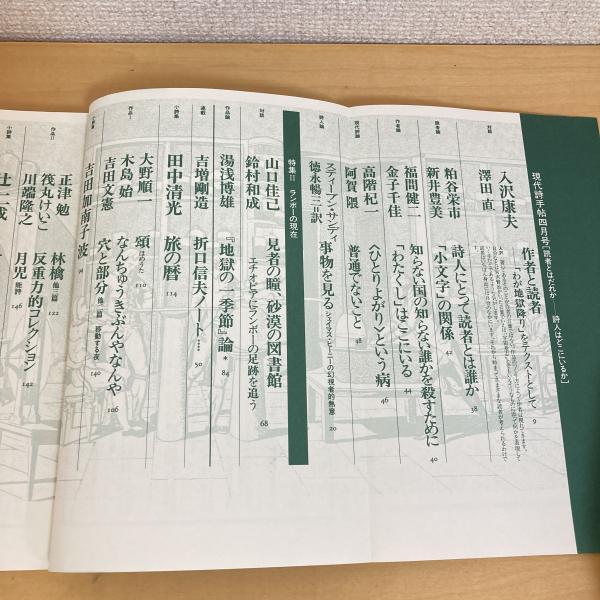 現代詩手帖四月号[読者とはだれか——詩人はどこにいるか]
対話
入沢康夫
澤田 直
作者と読者
——「わが地獄降り」をテクストとして 9
読者論
粕谷栄市 詩人にとって読者とは誰か 38
新井豊美 「小文字」の関係 42
作者論
福間健二 知らない国の知らない誰かを殺すために 40
金子千佳 「わたくし」はここにいる 44
現代詩論
高階杞一 〈ひとりよがり〉という病 46
阿賀隈 普通でないこと 48
詩人論
スティーブン・サンディ
徳永暢三=訳 事物を見る シェイマス・ヒーニーの幻視者的熱意 20
特集II ランボーの現在
対話
山口佳己
鈴村和成
見者の瞳、砂漠の図書館
エチオピアにランボーの足跡を追う 68
作品論
湯浅博雄 『地獄の一季節』論* 84
連載
吉増剛造 折口信夫ノート…… 50
小詩集
田中清光 旅の暦 114
作品I
大野順一 頌 ほめうた 110
木島 始 なんちゅうきぶんやなんや 106
吉田文憲 穴と部分 他一篇 移動する夜 140
小詩集
吉田加南子 波 94
作品II
正津 勉 林檎 他二篇 122
筏丸けいこ 反重力的コレクション 142
川端隆之 月児 能詩 146
小詩集